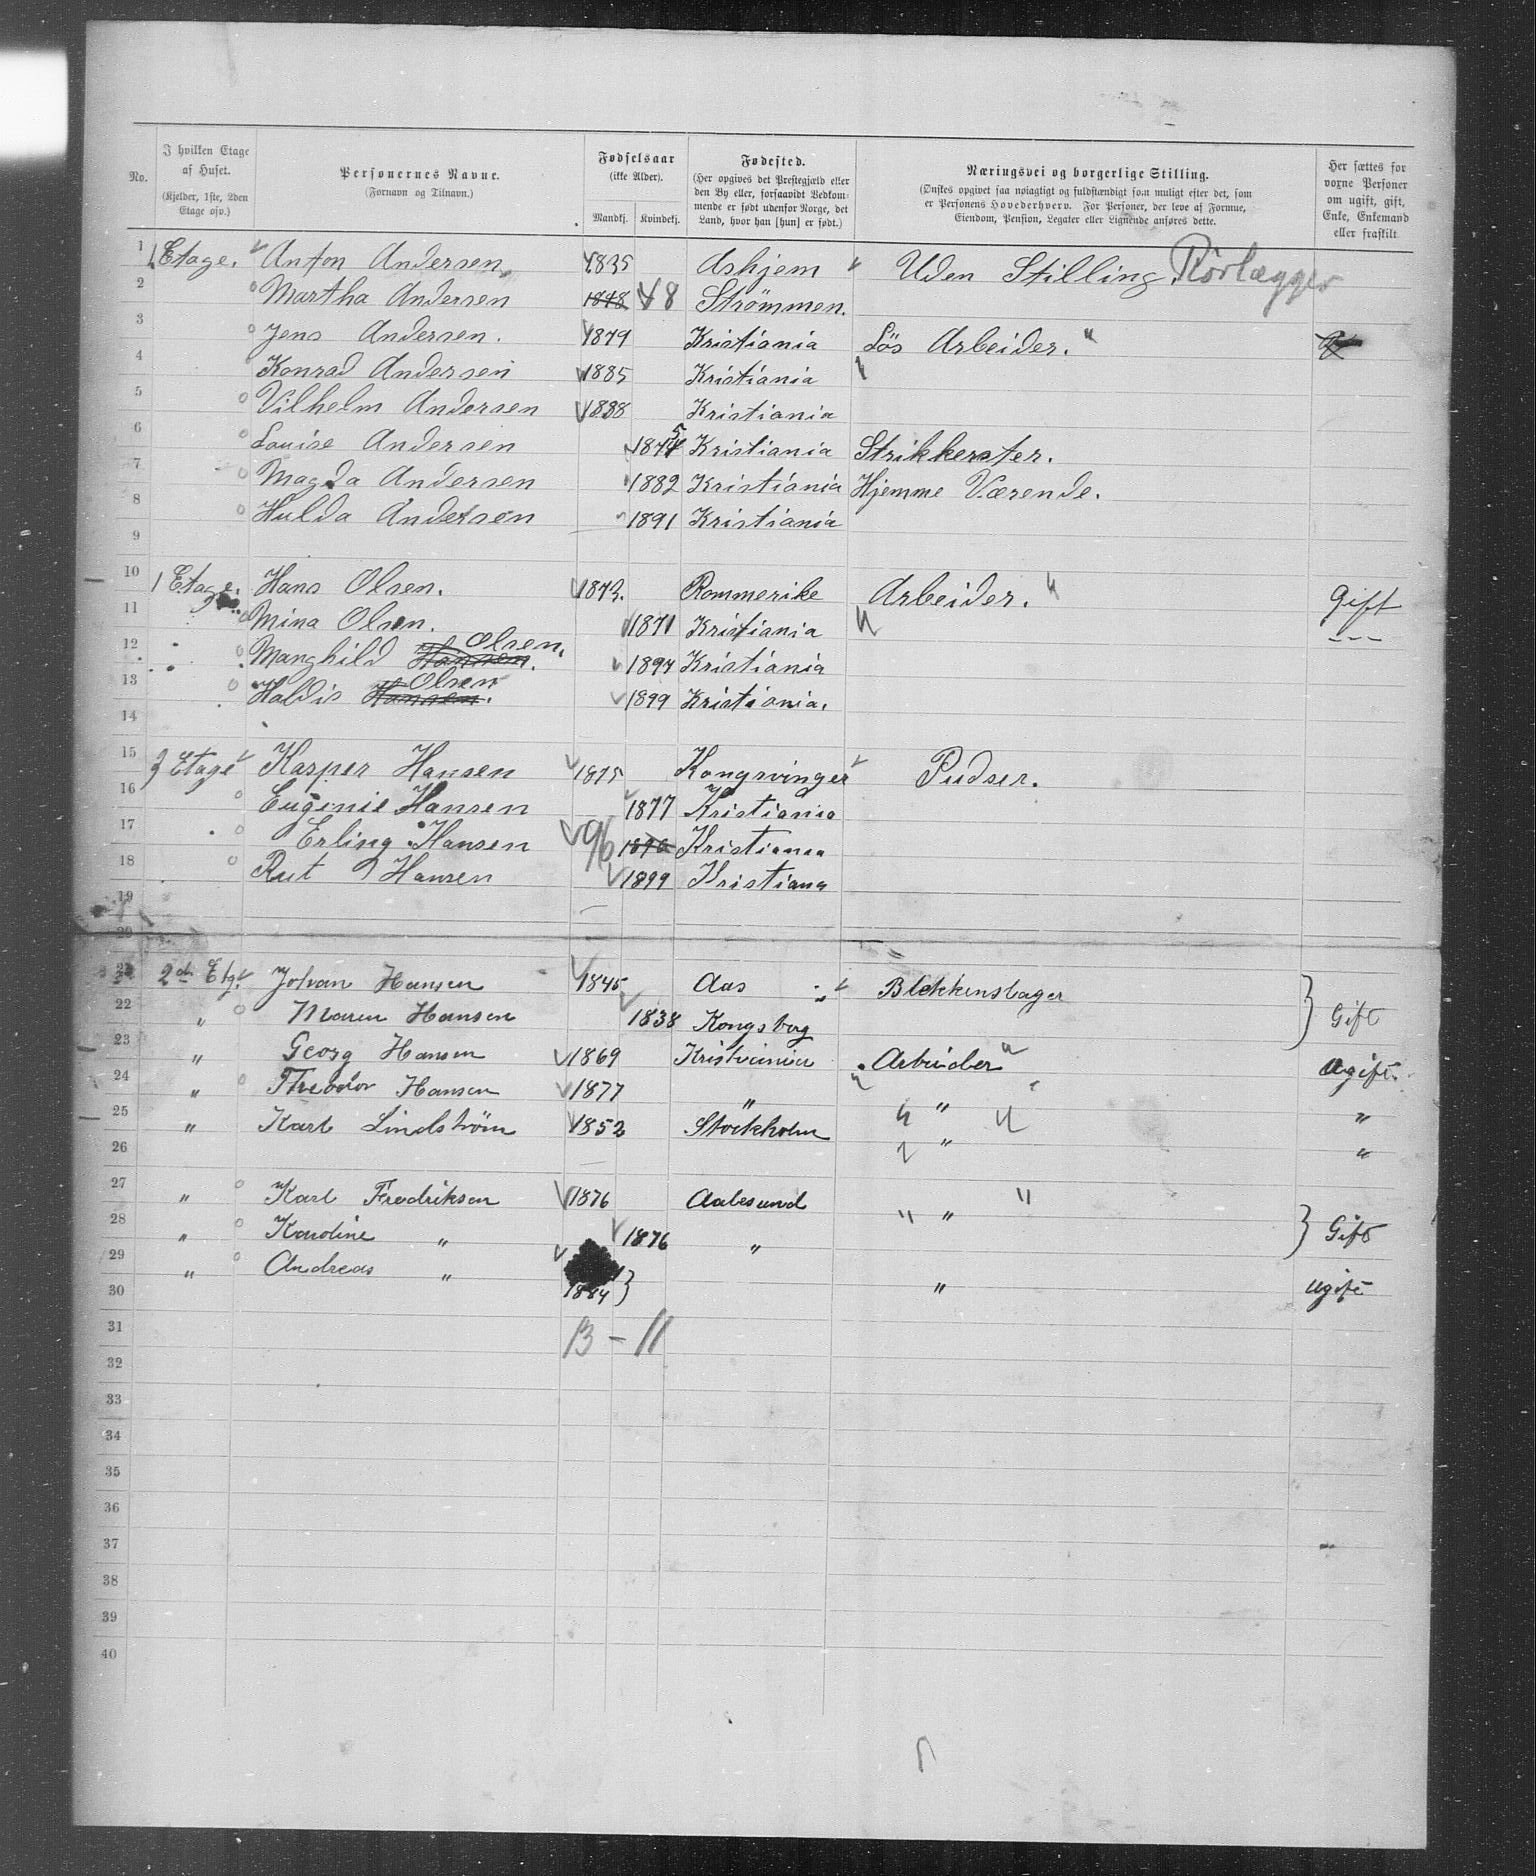 No. I hvilken Etage af Huset. (Kjelder, 1ste, 2den Etage osv.) Personernes Navne. (Fornavn og Tilnavn.) Fødselsaar (ikke Alder). Mandkj. Kvindekj. Fødested. (Her opgives det Prestegjæld eller den By eller, forsaavidt Vedkommende er født udenfor Norge, det Land, hvor han [hun] er født.) Næringsvei og borgerlige Stilling. (Ønskes opgivet saa nøiagtigt og fuldstændigt som muligt efter det, som er Personens Hovederhverv. For Personer, der leve af Formue, Eiendom, Pension, Legater eller Lignende anføres dette. Her sættes for voxne Personer om ugift, gift, Enke, Enkemand eller fraskilt
1 1 Etage. Anton Andersen 1835 Ashjem Uden Stilling Rörlægger
2 Martha Andersen 1848 48 Strömmen.
3 Jens Andersen. 1879 Kristiania Løs Arbeider.
4 Konrad Andersen 1885 Kristiania
5 Vilhelm Andersen 1888 Kristiania
6 Louise Andersen 1875 Kristiania Strikkerster.
7 Magda Andersen 1882 Kristiania Hjemme Værende.
8 Hulda Andersen 1891 Kristiania
9
10 1 Etage. Hans Olsen. 1873. Rommerike Arbeider. gift
11 Mina Olsen. 1871 Kristiania ---
12 Manghild Hansen. Olsen. 1897 Kristiania
13 Haldis Hansen. Olsen 1899 Kristiania.
14
15 3 Etage Kasper Hansen 1875 Kongsvinger Pudser.
16 Eugenie Hansen 1877 Kristiania
17 Erling Hansen 96 1896 Kristiania
18 Rut Hansen 1899 Kristiana
19
20
21 2den Etg. Johan Hansen 1845 Aas Blekkenslager } Gift
22 " Maren Hansen 1838 Kongsberg
23 " Georg Hansen 1869 Kristiania Arbeider Ugift.
24 " Theodor Hansen 1877 " " "
25 " Karl Lindström 1852 Stockholm " "
26
27 " Karl Fredriksen 1876 Aalesund " } Gift
28 " Karoline " 1876 "
29 " Andreas " 1884 } " ugift
30
31 13 - 11
32
33
34
35
36
37
38
39
40